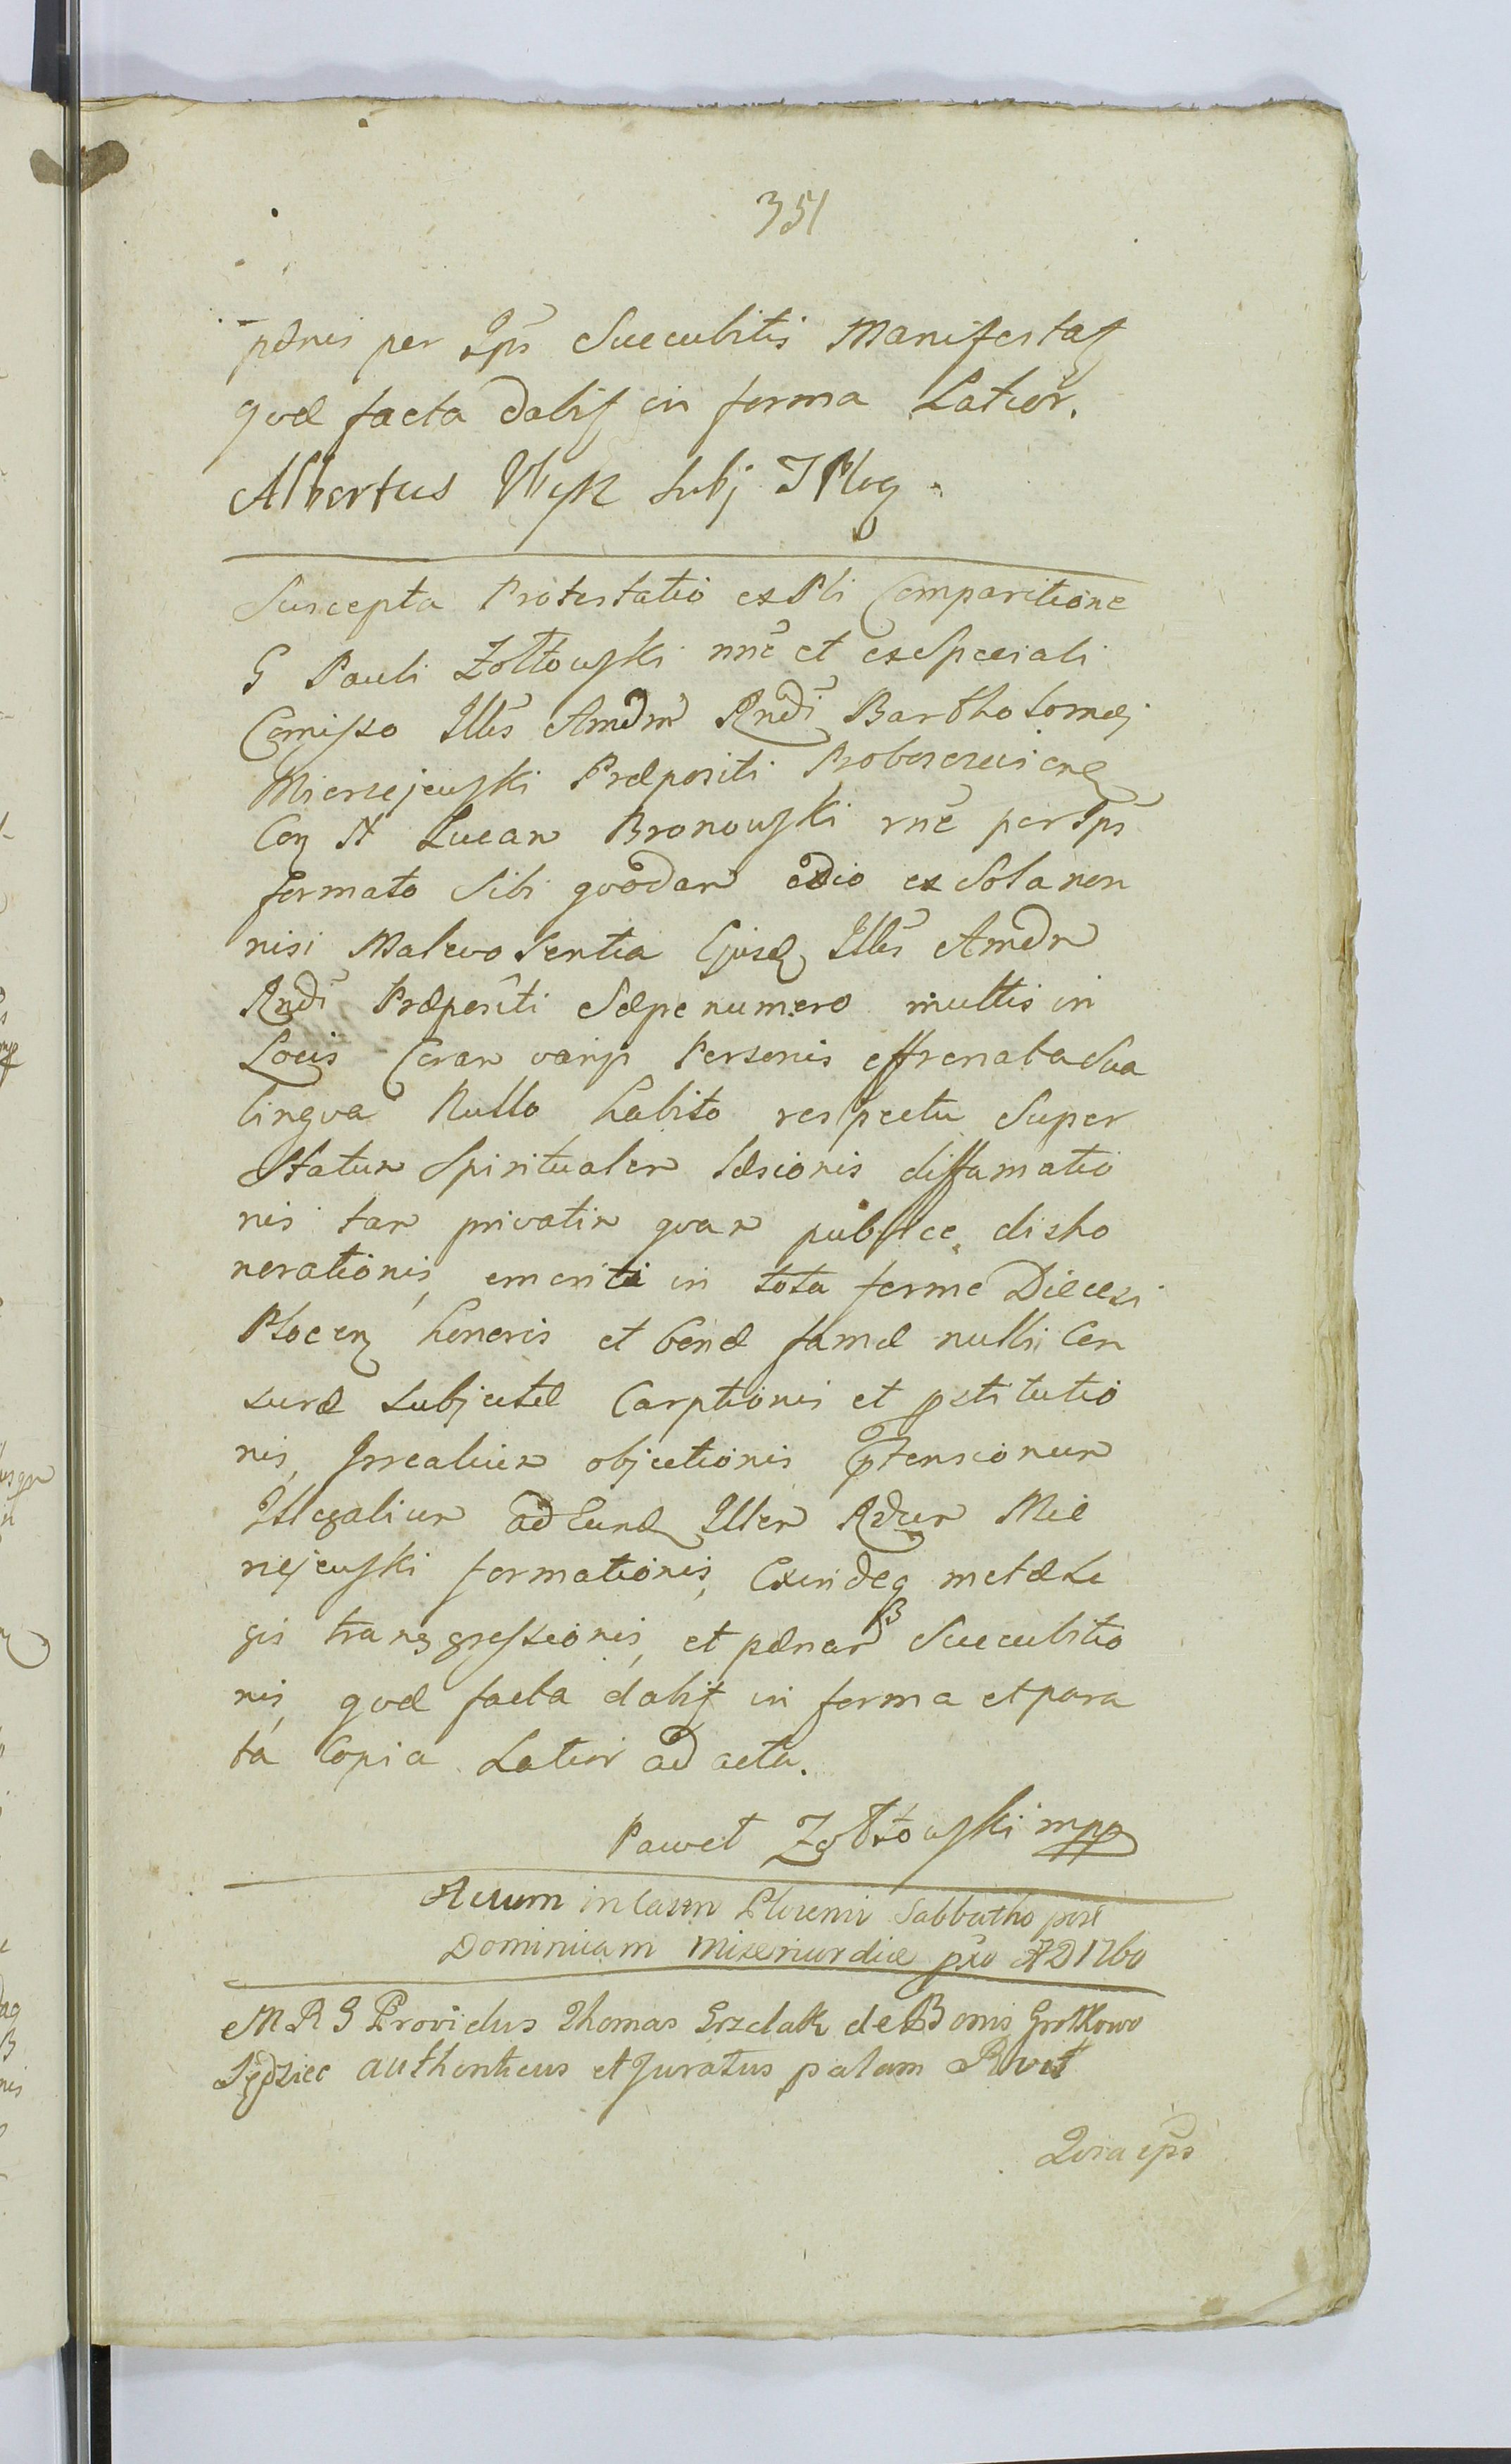 351
pœnis per Ips Succubitis Manifestatʒ
qvæ facta dabitʒ in forma Latior.
Albertus Wyk subj J Ploc
Suscepta Protestatio ex Psli Comparitione
G Pauli Zołtowski nne et ex Speciali
Comisso Illis Amdm Rndi Bartholomæj
Mierzejewski Præpositi Proboszczewicen
Con N Lucam Bronowski rne per Ips
formato Sibi qvodam odio ex Sola non
nisi Malevolentia Ejusd Illis Amdm
Rndi Præpositi Sæpe numero multis in
Locis Coram varijs Personis effrenata Sua
lingva Nullo habito respectu Super
Statum Spiritualem læsionis diffamatio
nis tam privatim qvam publice, disho
norationis, emeriti in tota ferme Dilecesi
Plocen honoris et bonæ famæ nulli Cen
suræ subjectæ Carptionis et pstitutio
nis, Irrealium objectionis Ptensionum
Illegalium ad Eund Illem Rdum Mie
rzejewski formationis, Exindeq metæ Le
gis transgressionis, et pœnar Succubitio
nis, qvæ facta dabitʒ in forma et para
ta Copia Latior ad acta.
Paweł Zołtowski mpp
Actum in Castro Plocensi Sabbatho post
Dominicam Misericordiæ pxo AD 1760
M R G Providus Thomas Grzelak de Bonis Grotkowo
Sędziec authenticus et Juratus palam R vit
Qvia ips